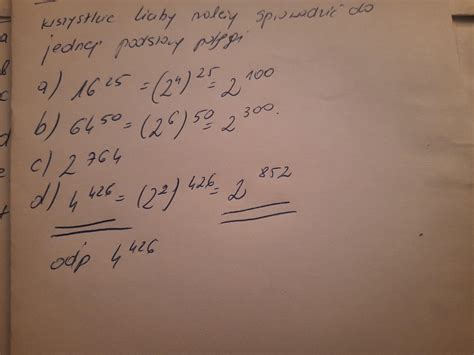 wszystkie liczby należy sprowadzić do
jednej podstawy potęgi
a) 16²⁵ = (2⁴)²⁵ = 2¹⁰⁰
b) 64⁵⁰ = (2⁶)⁵⁰ = 2³⁰⁰.
c) 2⁷⁶⁴
d) 4⁴²⁶ = (2²)⁴²⁶ = 2⁸⁵²
odp 4⁴²⁶